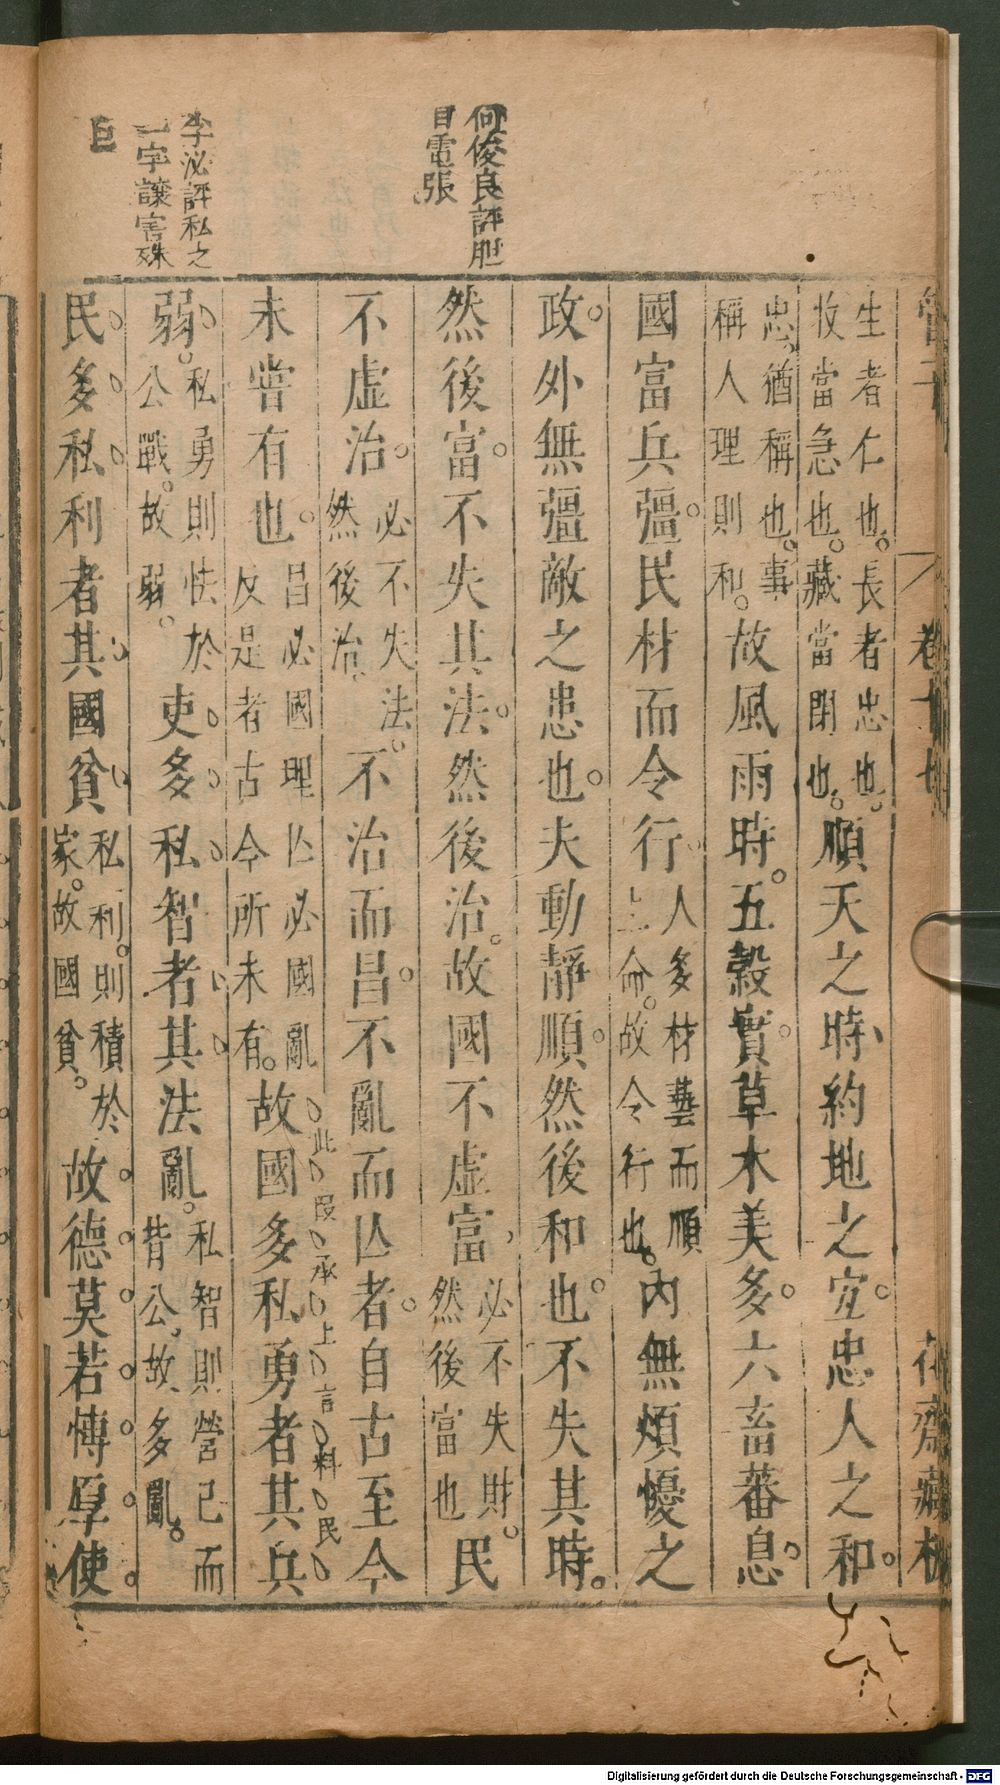 何俊良評胆
目電張
李泌評私之
一字讓害殊
巨
生者仁也。長者忠也。
收當急也。藏當閉也。
順天之時約地之宜。忠人之和。
忠、猶稱也。事
稱人理則和。
故風雨時。五穀實。草木美多。六畜蕃息。
國富兵彊。民材而令行
人多材藝而順
上命。故令行也。
內無煩憂之
政。外無彊敵之患也。夫動靜順。然後和也。不失其時。
然後富。不失其法。然後治。故國不虛富
必不失財。
然後富也
民
不虛治。
必不失法。
然後治
不治而昌。不亂而亾者。自古至今
未嘗有也。
昌必國理亾必國亂
反是者古今所未有。
故國多私勇者其兵
此段承上言料民
弱。
私勇則怯於
公戰。故弱。
吏多私智者其法亂。
私智則營己而
背公。故多亂。
民多私利者其國貧
私利。則積於
家。故國貧。
故德莫若博厚使
管子
卷十七
花齋藏板
Digitalisierung gefördert durch die Deutsche Forschungsgemeinschaft - DFG